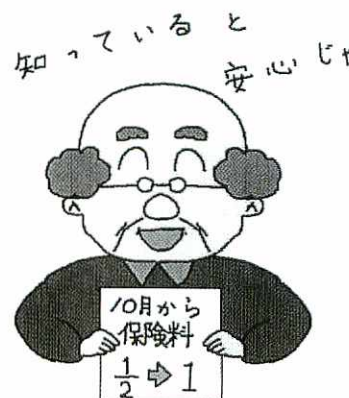 知っていると
安心じゃ
10月から
保険料
1/2 ⇨ 1